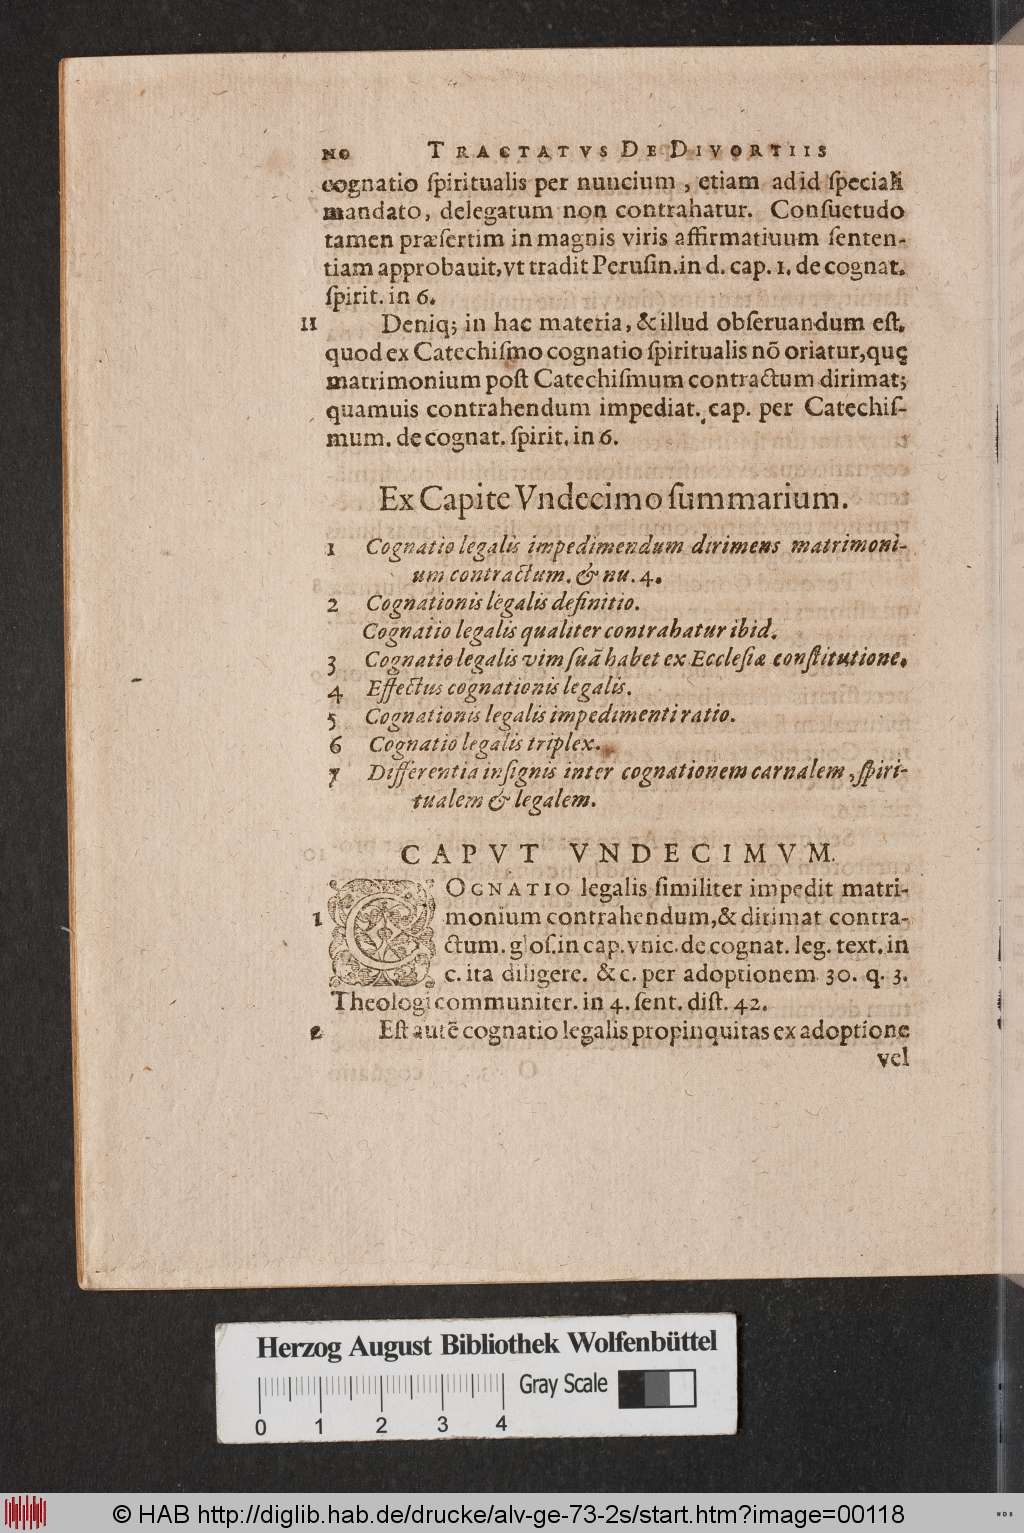 110 TRACTATVS DE DIVORTIIS
cognatio ſpiritualis per nuncium, etiam ad id ſpeciali
mandato, delegatum non contrahatur. Conſuetudo
tamen præſertim in magnis viris affirmatiuum ſenten-
tiam approbauit, vt tradit Peruſin. in d. cap. 1. de cognat.
ſpirit. in 6.
11 Deniq; in hac materia, & illud obſeruandum eſt,
quod ex Catechiſmo cognatio ſpiritualis nõ oriatur, quę
matrimonium poſt Catechiſmum contractum dirimat;
quamuis contrahendum impediat. cap. per Catechiſ-
mum. de cognat. ſpirit. in 6.
Ex Capite Vndecimo ſummarium.
1 Cognatio legalis impedimendum dirimens matrimoni-
um contractum. & nu. 4.
2 Cognationis legalis definitio.
Cognatio legalis qualiter contrahatur ibid.
3 Cognatio legalis vim ſuã habet ex Eccleſiæ conſtitutione.
4 Effectus cognationis legalis.
5 Cognationis legalis impedimenti ratio.
6 Cognatio legalis triplex.
7 Differentia inſignis inter cognationem carnalem, ſpiri-
tualem & legalem.
CAPVT VNDECIMVM.
COGNATIO legalis ſimiliter impedit matri-
1 monium contrahendum, & dirimat contra-
ctum. gloſ. in cap. vnic. de cognat. leg. text. in
c. ita diligere. & c. per adoptionem 30. q. 3.
Theologi communiter. in 4. ſent. diſt. 42.
2 Eſt autẽ cognatio legalis propinquitas ex adoptione
vel
Herzog August Bibliothek Wolfenbüttel
Gray Scale
0 1 2 3 4
© HAB http://diglib.hab.de/drucke/alv-ge-73-2s/start.htm?image=00118